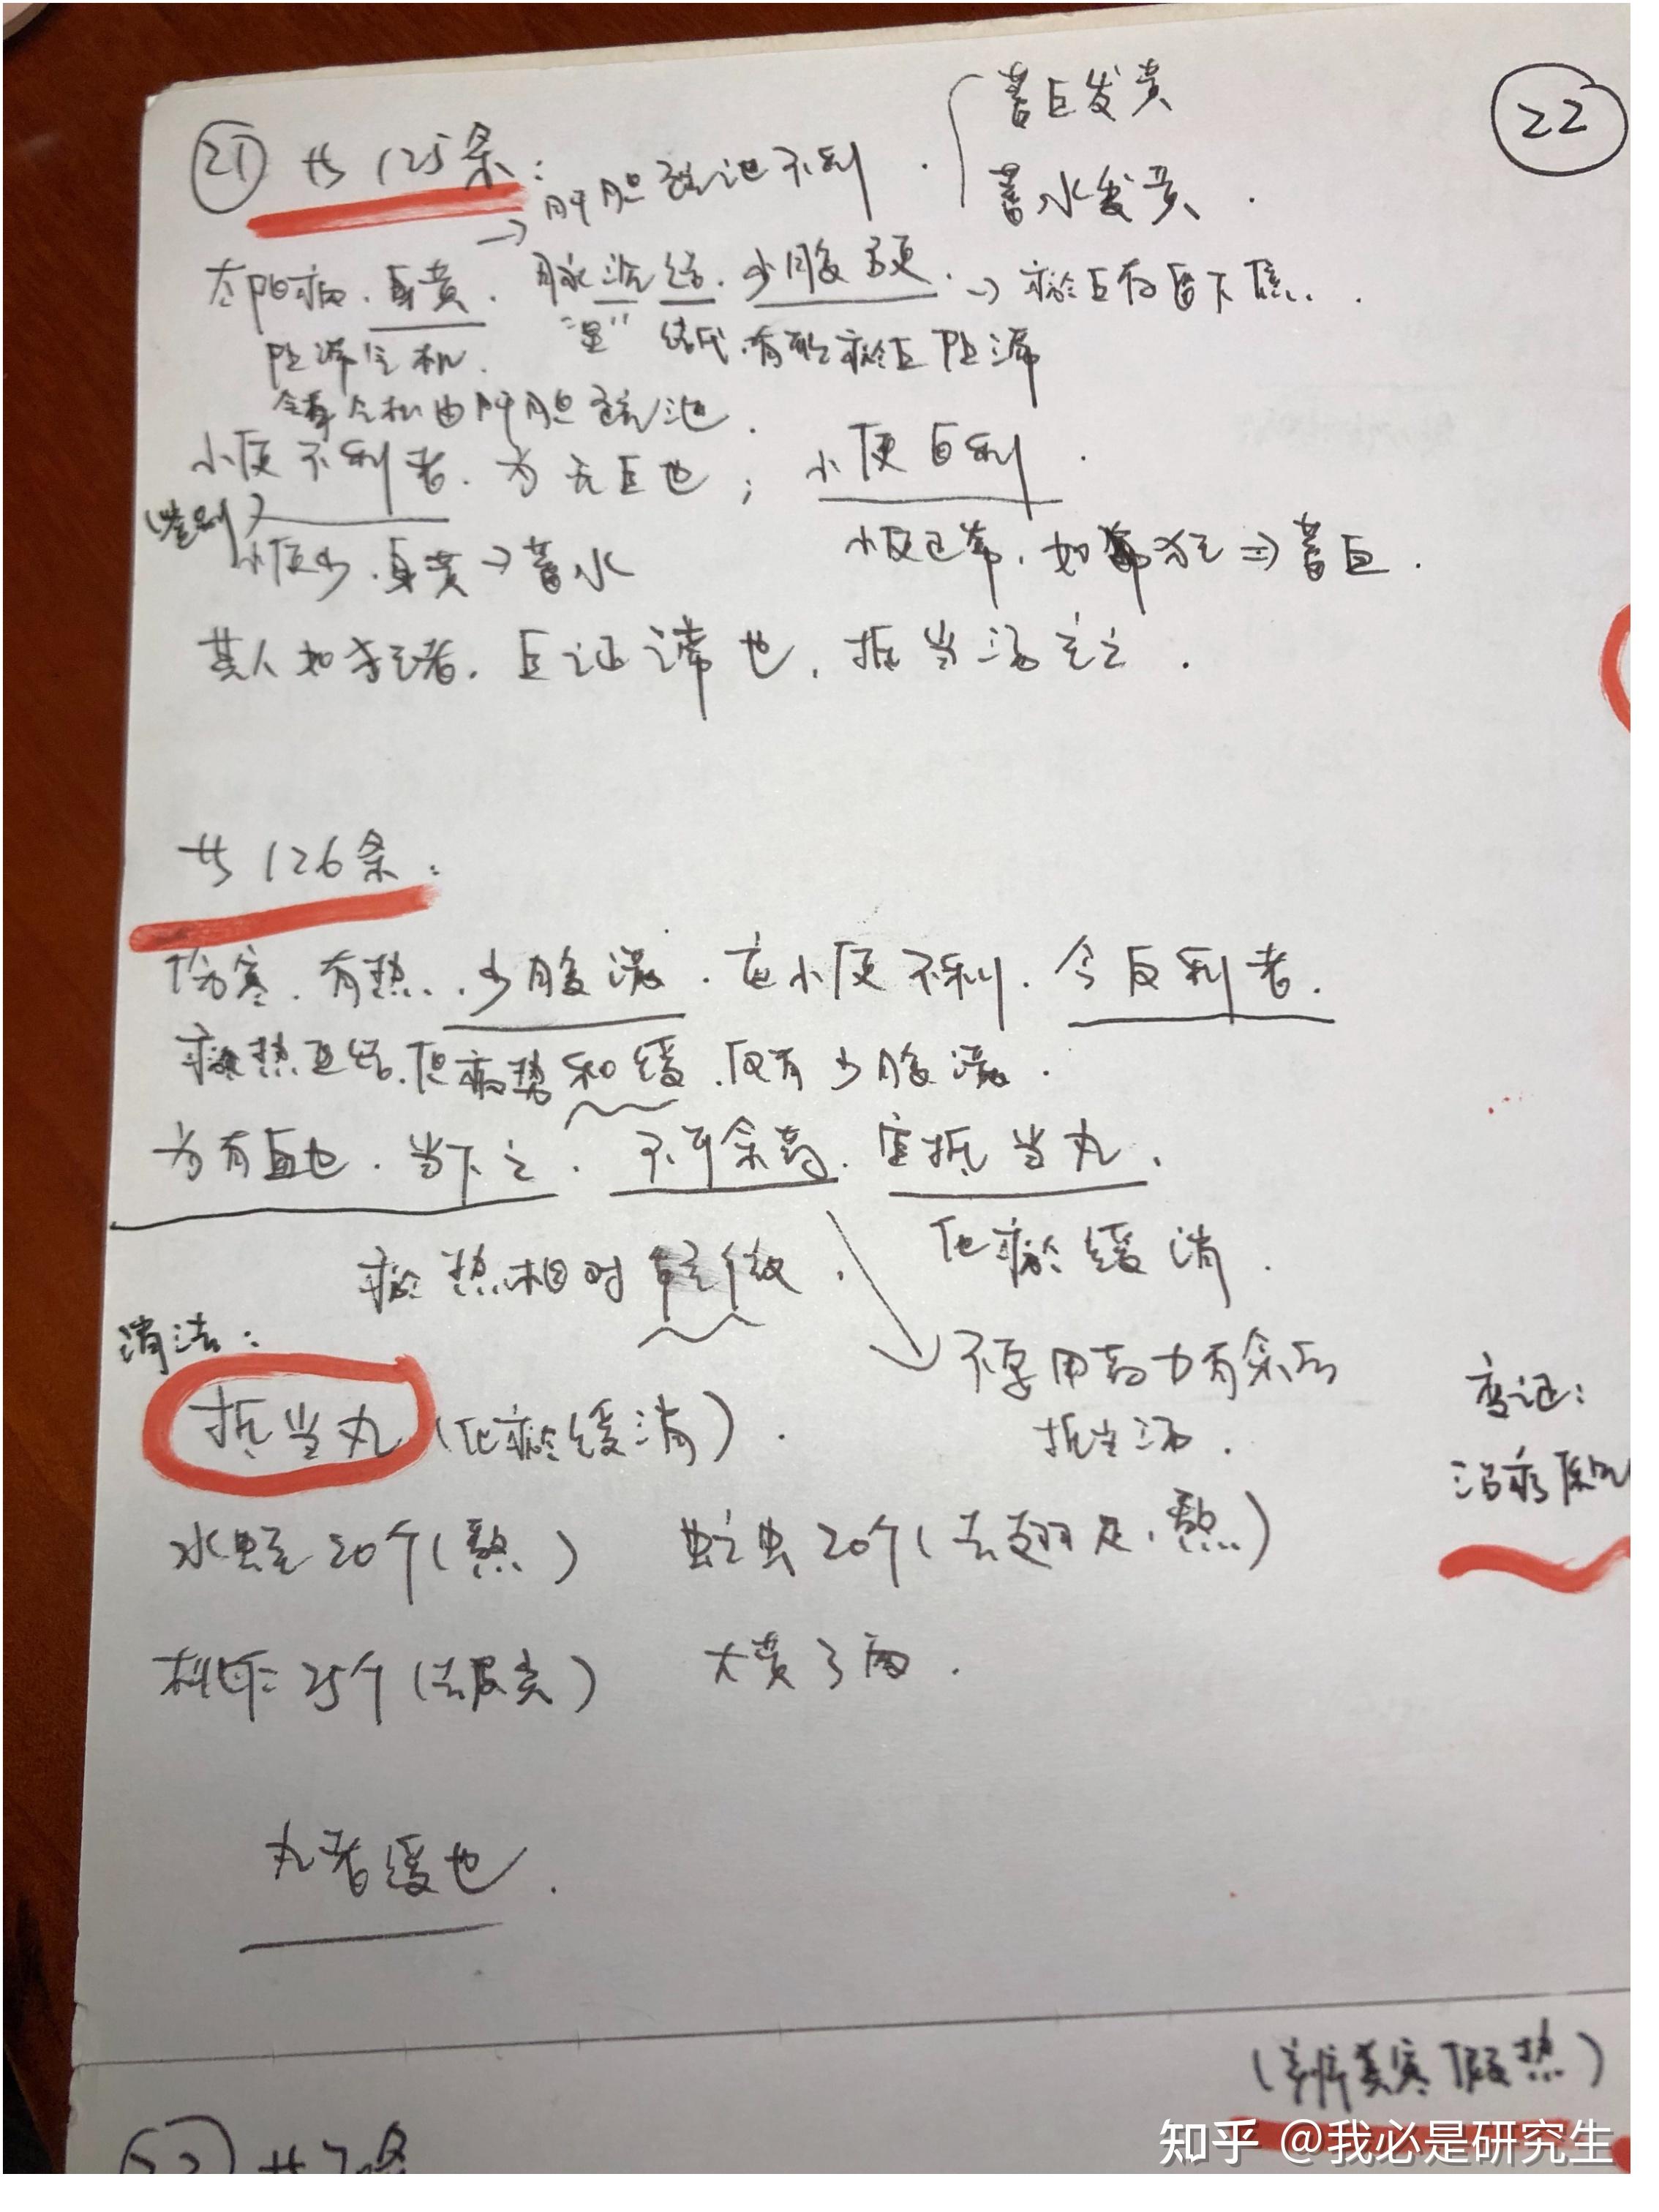 蓄血发黄
22
21 共125条：
肝胆疏泄不利
蓄水发黄
太阳病．身黄．脉沉结．少腹硬．→瘀血存留下焦．
阻滞气机．
"里" 结代，有形瘀血阻滞
全身气机由肝胆疏泄．
小便不利者．为无血也；小便自利．
（鉴别）
小便少．身黄→蓄水
小便正常，如常 狂⇒蓄血．
其人如狂者．血证谛也．抵当汤主之．
共126条：
伤寒．有热．少腹满．应小便不利．今反利者．
瘀热互结．但病势和缓．仅有少腹满．
为有血也．当下之．不可余药．宜抵当丸．
瘀热相对轻微．
化瘀缓消．
消法：
不要用药力有余的
抵当汤．
变证：
抵当丸（化瘀缓消）．
治疗原则
水蛭20个（熬） 虻虫20个（去翅足．熬）
桃仁25个（去皮尖） 大黄3两．
丸者缓也．
（辨真寒假热）
共7条
知乎 @我必是研究生